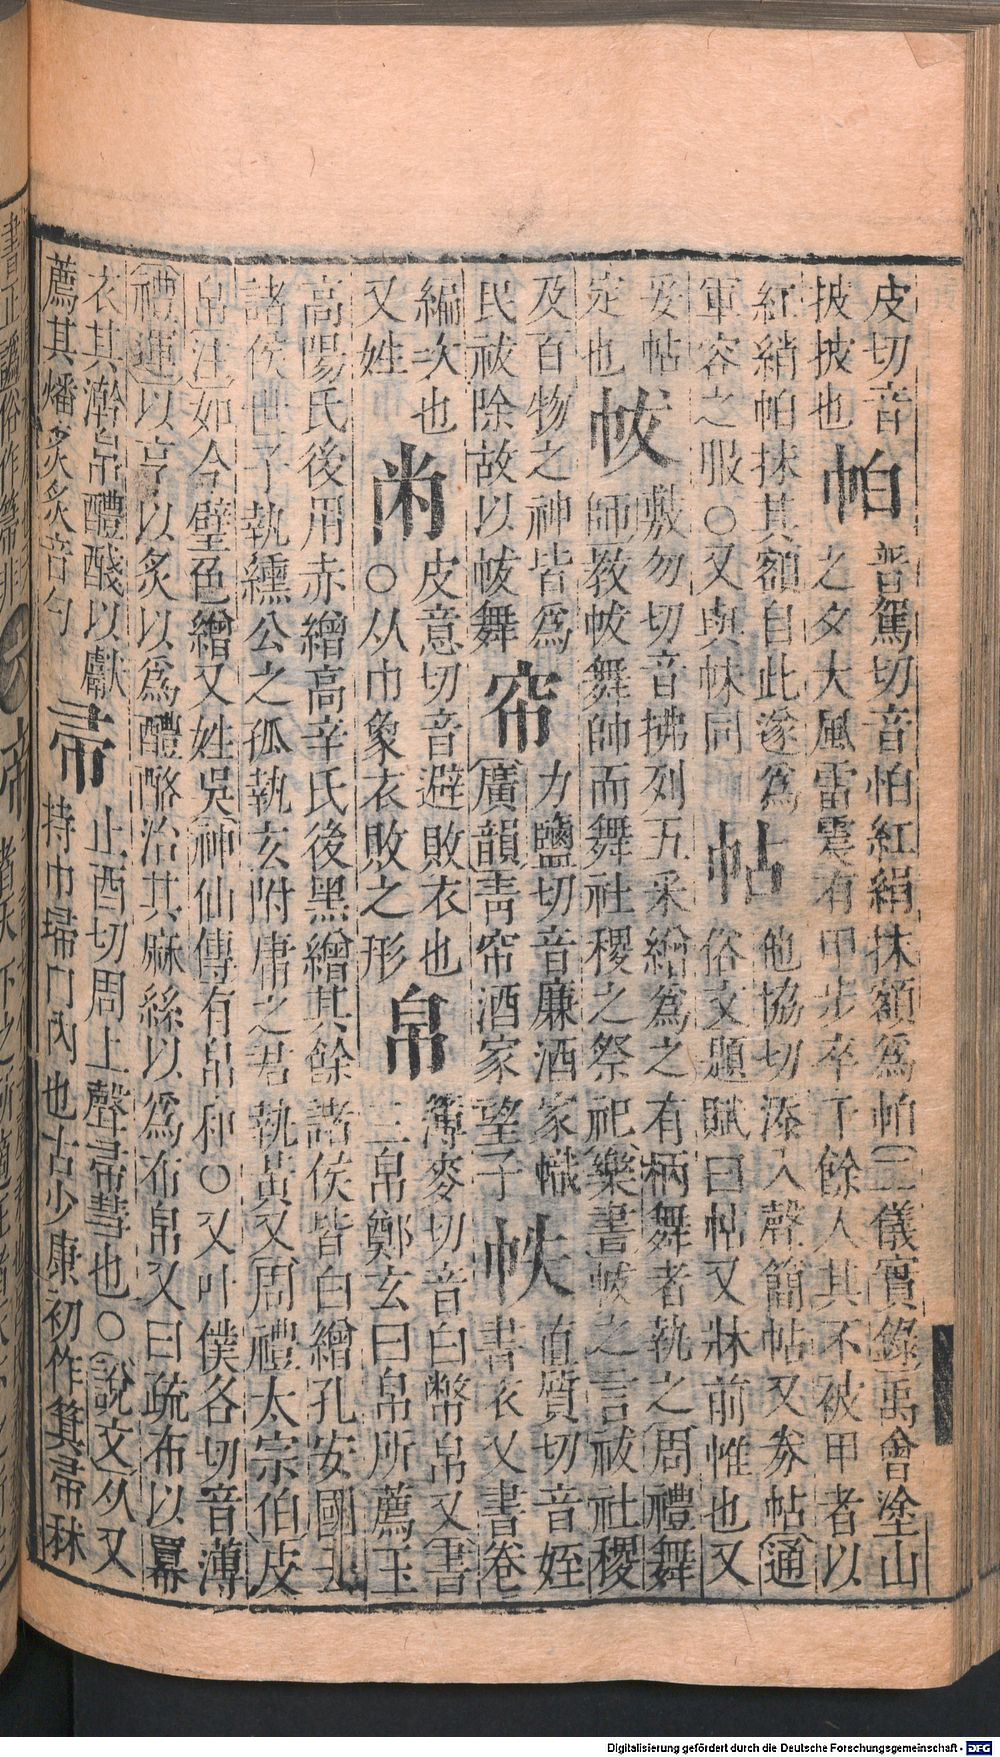 皮切音
披披也
帕
普駕切音怕紅絹抹額爲帕三儀實錄禹會塗山
之夕大風雷震有甲步卒千餘人其不被甲者以
紅綃帕抹其額自此遂爲
軍容之服○又與帓同
帖
他協切添入聲簡帖又券帖通
俗文題賦曰帖又牀前帷也又
妥帖
定也
帗
敷勿切音拂列五采繒爲之有柄舞者執之周禮舞
師教帗舞帥而舞社稷之祭祀樂書帗之言祓社稷
及百物之神皆爲
民祓除故以帗舞
帘
力鹽切音廉酒家幟
廣韻靑帘酒家望子
帙
直質切音姪
書衣又書卷
編次也
又姓
㡀
皮意切音避敗衣也
○从巾象衣敗之形
帛
簿麥切音白幣帛又書
三帛鄭玄曰帛所薦玉
高陽氏後用赤繒高辛氏後黑繒其餘諸侯皆白繒孔安國云
諸侯世子執纁公之孤執玄附庸之君執黃又周禮太宗伯皮
帛注如今璧色繒又姓吳神仙傳有帛和○又叶僕各切音薄
禮運以亨以炙以爲醴酪治其麻絲以爲布帛又曰疏布以冪
衣其澣帛醴醆以獻
薦其燔炙炙音勺
帚
止酉切周上聲帚彗也○說文从又
持巾埽冂內也古少康初作箕帚秫
Digitalisierung gefördert durch die Deutsche Forschungsgemeinschaft - DFG